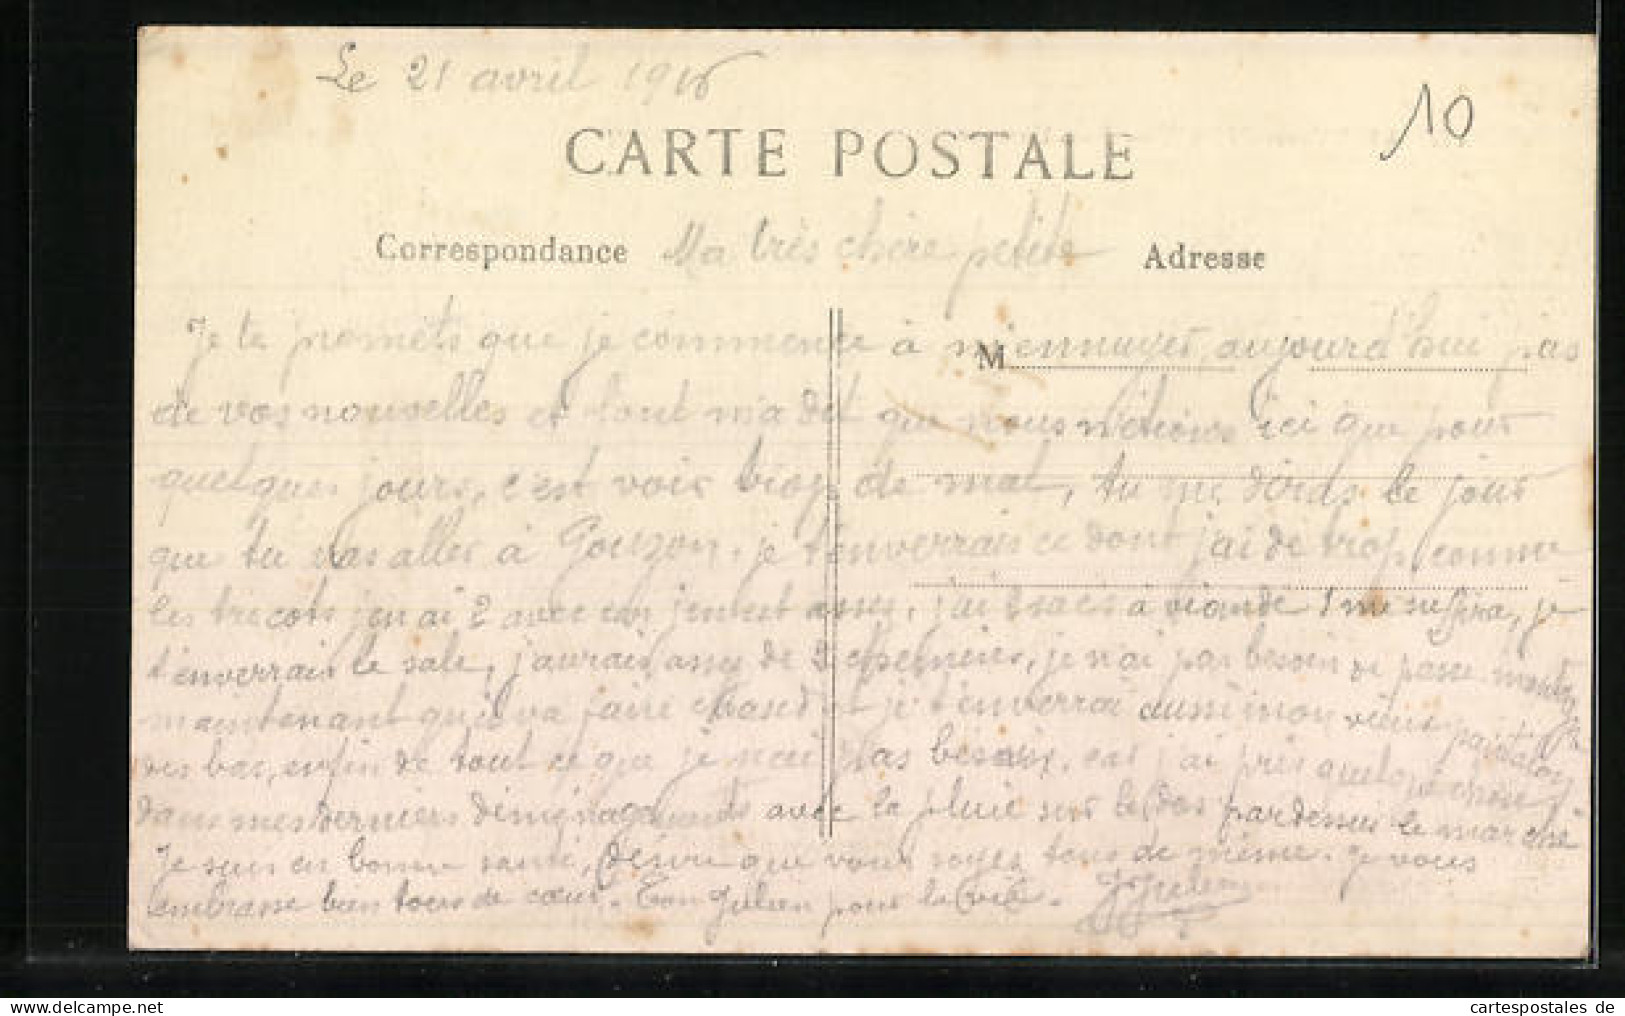 Le 21 avril 1916
10
CARTE POSTALE
Correspondance Ma très chère petite Adresse
Je te promets que je commence à m'ennuyer, aujourd'hui pas
M
de vos nouvelles et tout m'a dit que nous n'étions ici que pour
quelques jours, c'est voir trop de mal, tu me diras le jour
que tu vas aller à Gouzon, je t'enverrais ce dont j'ai de trop comme
les tricots j'en ai 2 avec un j'en est assez, j'ai sacs à viande 1 me suffira, je
t'enverrais le sale, j'aurais assez de 3 chemises, je n'ai pas besoin de passe montagne
maintenant qu'il va faire chaud et je t'enverrai aussi mon vieux pantalon
des bas, enfin de tout ce que je n'ai pas besoin, car j'ai pris quelque chose
dans mes derniers déménagements avec la pluie sur le dos par dessus le marché
Je suis en bonne santé, désire que vous soyez tous de même. Je vous
embrasse bien tous de cœur. Ton Julien pour la vie.